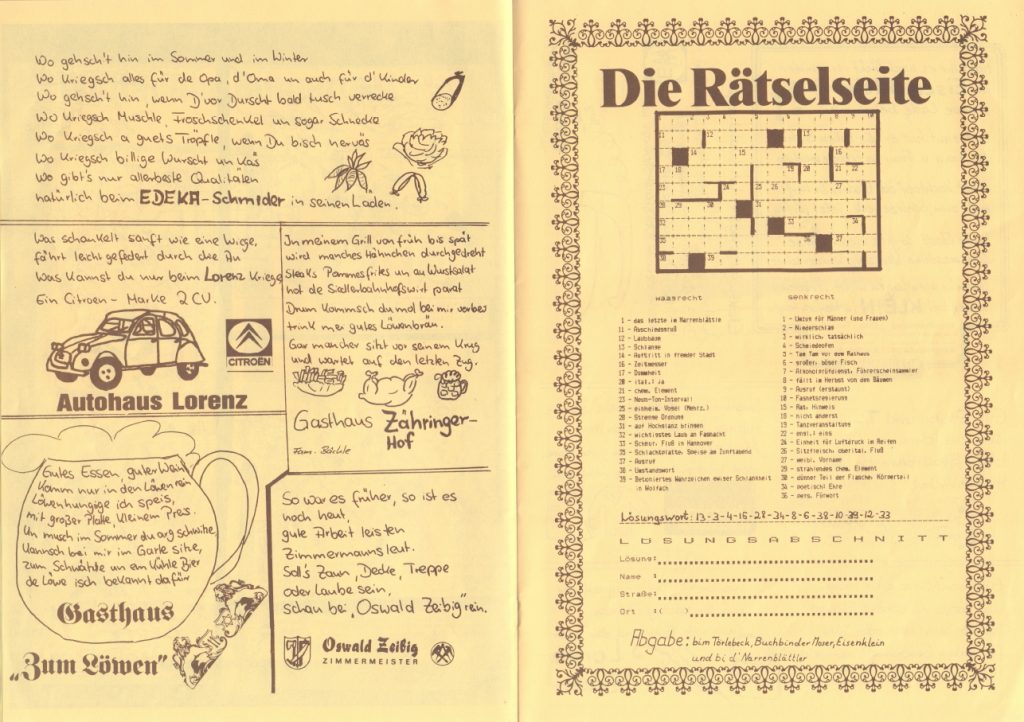 Wo gehsch't hin im Sommer und im Winter
Wo Kriegsch alles für de Opa, d'Oma un auch für d'Kinder
Wo gehsch't hin, wenn D'vor Durscht bald tusch verrecke
Wo Kriegsch Muschle, Froschschenkel un sogar Schnecke
Wo Kriegsch a guets Tröpfle, wenn Du bisch nervös
Wo Kriegsch billige Wurscht un Käs
Wo gibt's nur allerbeste Qualitäten
natürlich beim EDEKA-Schmider in seinen Läden.
Was schaukelt sanft wie eine Wiege,
fährt leicht gefedert durch die Au
Was Kannst du nur beim Lorenz Kriege
Ein Citroen-Marke 2 CV.
CITROËN
Autohaus Lorenz
In meinem Grill von früh bis spät
wird manches Hähnchen durchgedreht
Steaks Pommesfrites un au Wurstsalat
hat de Siedlerbahnhofswirt parat
Drum Kommsch du mol bei mir vorbei
trink mer gutes Löwenbräu.
Gar mancher sitzt vor seinem Krug
und wartet auf den letzten Zug.
Gasthaus Zähringer-
Hof
Fam. Bächle
Gutes Essen, guter Wein
Komm nur in den Löwen rein
Löwenhungrige ich speis,
mit großer Platte, Kleinem Preis.
Un musch im Sommer du arg schwitze,
kannsch bei mir im Garte sitze,
zum Schwätzle un em Kühle Bier
de Löwe isch bekannt dafür
Gasthaus
„Zum Löwen"
So war es früher, so ist es
noch heut,
gute Arbeit leisten
Zimmermannsleut.
Soll's Zaun, Decke, Treppe
oder Laube sein,
schau bei „Oswald Zeibig" rein.
Oswald Zeibig
ZIMMERMEISTER
Die Rätselseite
waagrecht
1 - das letzte im Narrenblättle
11 - Abschiedsgruß
12 - Laubbaum
13 - Schlange
14 - Auftritt in fremder Stadt
16 - Zeitmesser
17 - Dummheit
20 - ital.: ja
21 - chem. Element
23 - Neun-Ton-Intervall
25 - einheim. Vogel (Mehrz.)
28 - Strenge Ordnung
31 - auf Hochglanz bringen
32 - wichtigstes Laus an Fasnacht
33 - Schnur, Fluß in Hannover
35 - Schlachtplatte, Speise am Zunftabend
37 - Ausruf
38 - Umstandswort
39 - Betoniertes Wahrzeichen ewiger Schlankheit
in Wolfach
senkrecht
1 - Umzug für Männer (und Frauen)
2 - Niederschlag
3 - wirklich, tatsächlich
4 - Schmiedeofen
5 - Tam Tam vor dem Rathaus
6 - großer, böser Fisch
7 - Alkoholprüfdienst, Führerscheinsammler
8 - fällt im Herbst von den Bäumen
9 - Ausruf (erstaunt)
10 - Fasnetsregierung
15 - Rat, Hinweis
18 - nicht anderst
19 - Tanzveranstaltung
22 - engl.: eins
24 - Einheit für Luftdruck im Reifen
26 - Sitzfleisch; oberital. Fluß
27 - weibl. Vorname
29 - strahlendes chem. Element
30 - dünner Teil der Flasche, Körperteil
34 - poetisch: Ehre
36 - pers. Fürwort
Lösungswort: 13-3-4-16-28-34-8-6-38-10-39-12-33
LÖSUNGSABSCHNITT
Lösung:
Name :
Straße:
Ort :( )
Abgabe: bim Törlebeck, Buchbinder Moser, Eisenklein
und bi d'Narrenblättler